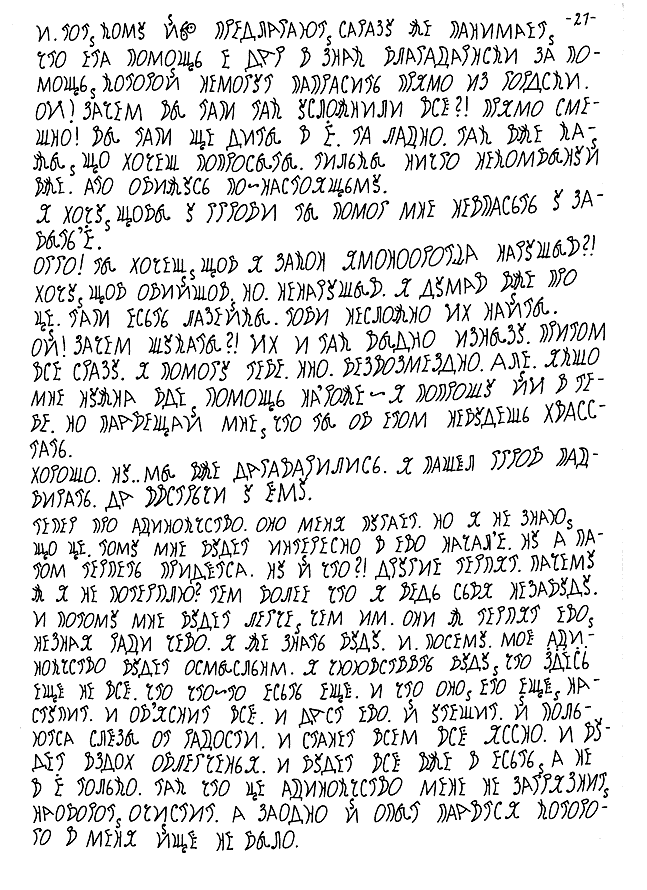 -21-
И. ТОТ, КОМУ ЙО ПРЕДЛАГАЮТ, САРАЗУ ЖЕ ПАНИМАЕТ,
ЧТО ЕТА ПОМОЩЬ Е ДАР В ЗНАК БЛАГАДАРНСКИ ЗА ПО-
МОЩЬ, КОТОРОЙ НЕМОГУТ ПАПРАСИТЬ ПРЯМО ИЗ ГОРДСКИ.
ОЙ! ЗАЧЕМ ВЫ ТАГИ ТАК УСЛОЖНИЛИ ВСЁ?! ПРЯМО СМЕ-
ШНО! ВЫ ТАГИ ЩЕ ДИТЫ В Ё. ТА ЛАДНО. ТАК ВЖЕ КА-
ЖЫ, ЩО ХОЧЕШ ПОПРОСЫТЫ. ТИЛЬКЫ НИЧТО НЕКОМВЫНУЙ
ВЖЕ. АТО ОБИЖУСЬ ПО-НАСТОЯЩЬМУ.
Я ХОЧУ, ЩОБЫ У ГГРОБИ ТЫ ПОМОГ МНЕ НЕВПАСЬТЬ У ЗА-
БЫТЬ'Ё.
ОГГО! ТЫ ХОЧЕШ, ЩОБ Я ЗАКОН ЯМОНООРОТЦА НАРУШЫВ?!
ХОЧУ, ЩОБ ОБИЙШОВ, НО. НЕНАРУШЫВ. Я ДУМАВ ВЖЕ ПРО
ЦЕ. ТАГИ ЕСЬТЬ ЛАЗЕЙКЫ. ТОБИ НЕСЛОЖНО ИХ НАЙТЫ.
ОЙ! ЗАЧЕМ ШУКАТЫ?! ИХ И ТАК ВЫДНО ИЗНАЗУ. ПРИТОМ
ВСЕ СРАЗУ. Я ПОМОГУ ТЕБЕ. ННО. БЕЗВОЗМЕЗДНО. АЛЕ. ЯКШО
МНЕ НУЖНА БДЕ, ПОМОЩЬ НА'РОЖЕ - Я ПОПРОШУ ЙИ В ТЕ-
БЕ. НО ПАРБЕЩАЙ МНЕ, ЧТО ТЫ ОБ ЕТОМ НЕБУДЕШЬ ХВАСС-
ТАТЬ.
ХОРОШО. НУ.. МЫ ВЖЕ ДАГАВАРИЛИСЬ. Я ПАШЕЛ ГГРОБ ПАД-
БИРАТЬ. ДАР ВВСТРЬЧИ У ЁМУ.
ТЕПЕР ПРО АДИНОКЧСТВО. ОНО МЕНЯ ПУГАЕТ. НО Я НЕ ЗНАЮ,
ЩО ЦЕ. ТОМУ МНЕ БУДЕТ ИНТЕРЕСНО В ЕВО НАЧАЛ'Е. НУ А ПА-
ТОМ ТЕРПЕТЬ ПРИДЕТСА. НУ Й ЧТО?! ДРУГИЕ ТЕРПЯТ. ПАЧЕМУ
Ж Я НЕ ПОТЕРПЛЮ? ТЕМ БОЛЕЕ ЧТО Я ВЕДЬ СЬБЯ НЕЗАБУДУ.
И ПОТОМУ МНЕ БУДЕТ ЛЕГЧЕ, ЧЕМ ИМ. ОНИ Ж ТЕРПЯТ ЕВО,
НЕЗНАЯ РАДИ ЧЕВО. Я ЖЕ ЗНАТЬ БУДУ. И. ПОСЕМУ. МОЕ АДИ-
НОКЧСТВО БУДЕТ ОСМЫСЛЬНМ. Я ЧЮЮВСТВВТЬ БУДУ, ЧТО ЗДЕСЬ
ЕЩЕ НЕ ВСЁ. ЧТО ЧТО-ТО ЕСЬТЬ ЕЩЕ. И ЧТО ОНО, ЕТО ЕЩЕ, НА-
СТУПИТ. И ОБ'ЯСНИТ ВСЁ. И ДАСТ ЕВО. Й УТЕШИТ. Й ПОЛЬ-
ЮТСА СЛЕЗЫ ОТ РАДОСТИ. И СТАНЕТ ВСЕМ ВСЁ ЯССНО. И БУ-
ДЕТ ВЗДОХ ОБЛЕГЧЕНЬЯ. И БУДЕТ ВСЁ ВЖЕ В ЕСЬТЬ, А НЕ
В Ё ТОЛЬКО. ТАК ЧТО ЦЕ АДИНОКЧСТВО МЕНЕ НЕ ЗАГРЯЗНИТ,
НАОБОРОТ, ОЧИСТИТ. А ЗАОДНО Й ОПЫТ ПАРВТСЯ КОТОРО-
ГО В МЕНЯ ЙЩЕ НЕ БЫЛО.